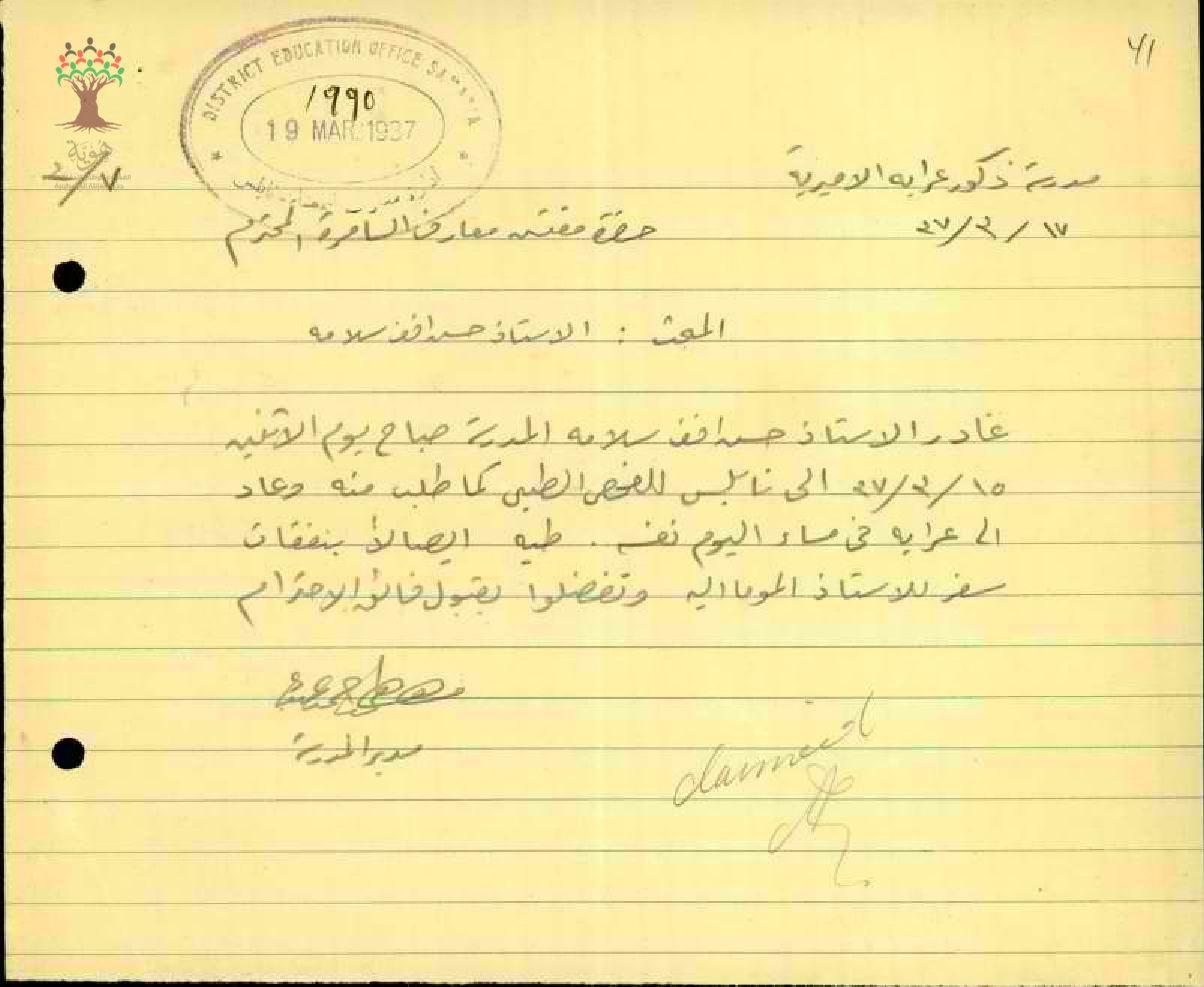 41
DISTRICT EDUCATION OFFICE
1990
19 MAR 1937
هوية
٢/٧
مدرسة ذكور عرابه الاميرية
٣٧/٣/١٧
حضرة مفتش معارف السامرة المحترم
المبحث : الاستاذ حسن افندي سلامه
غادر الاستاذ حسن افندي سلامه المدرسة صباح يوم الاثنين
٣٧/٣/١٥ الى نابلس للفحص الطبي كما طلب منه وعاد
الى عرابه في مساء اليوم نفسه . طيه ايصالا بنفقات
سفر للاستاذ الموما اليه وتفضلوا بقبول فائق الاحترام
مدير المدرسة